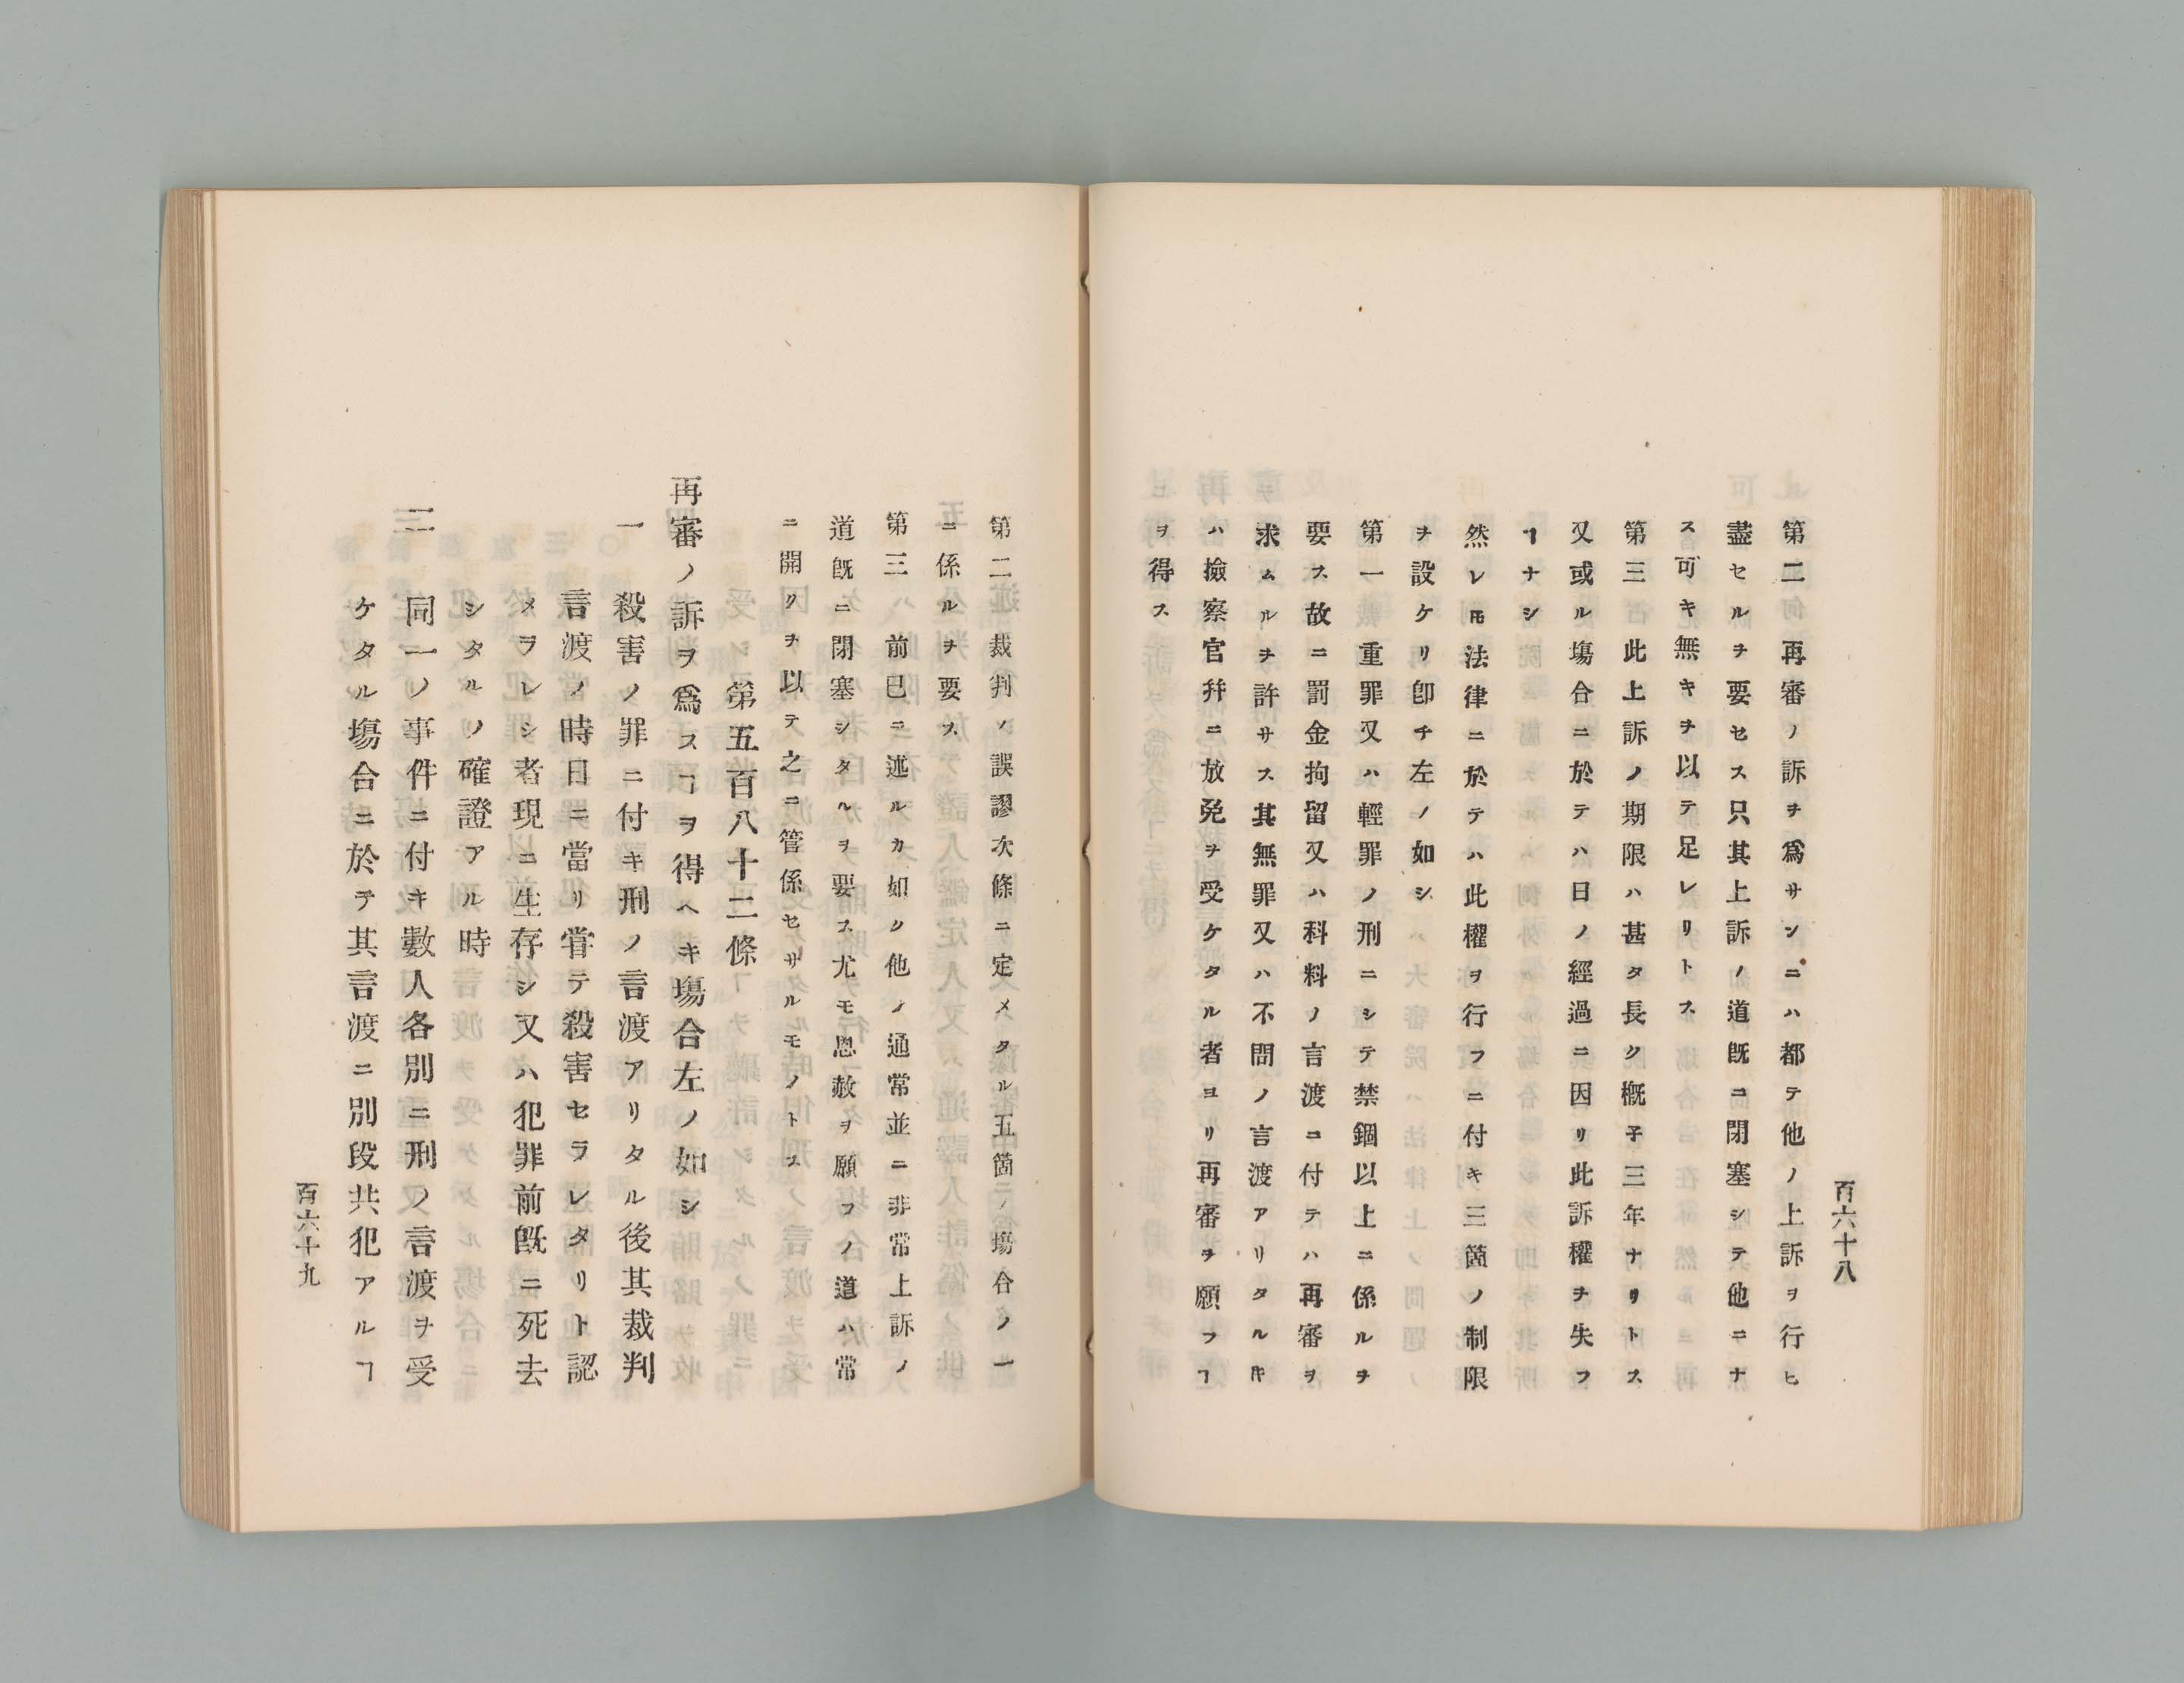 百六十八
第二　再審ノ訴ヲ爲サンニハ都テ他ノ上訴ヲ行ヒ
盡セルヲ要セス只其上訴ノ道既ニ閉塞シテ他ニナ
ス可キ無キヲ以テ足レリトス
第三　此上訴ノ期限ハ甚タ長ク概子三年ナリトス
又或ル塲合ニ於テハ日ノ經過ニ因リ此訴權ヲ失フ
ヿナシ
然レ𪜈法律ニ於テハ此權ヲ行フニ付キ三箇ノ制限
ヲ設ケリ卽チ左ノ如シ
第一　重罪又ハ輕罪ノ刑ニシテ禁錮以上ニ係ルヲ
要ス故ニ罰金拘留又ハ科料ノ言渡ニ付テハ再審ヲ
求ムルヲ許サス其無罪又ハ不問ノ言渡アリタルキ
ハ撿察官幷ニ放免ヲ受ケタル者ヨリ再審ヲ願フヿ
ヲ得ス
第二　裁判ノ誤謬次條ニ定メタル五箇ノ塲合ノ一
ニ係ルヲ要ス
第三ハ　前已ニ述ルカ如ク他ノ通常並ニ非常上訴ノ
道既ニ閉塞シタルヲ要ス尤モ恩赦ヲ願フノ道ハ常
ニ開クヲ以テ之ニ管係セサルモノトス
第五百八十二條
再審ノ訴ヲ爲スヿヲ得ヘキ塲合左ノ如シ
一　殺害ノ罪ニ付キ刑ノ言渡アリタル後其裁判
言渡ノ時日ニ當リ甞テ殺害セラレタリト認
メラレシ者現ニ生存シ又ハ犯罪前既ニ死去
シタルノ確證アル時
二　同一ノ事件ニ付キ數人各別ニ刑ノ言渡ヲ受
ケタル塲合ニ於テ其言渡ニ別段共犯アルヿ
百六十九